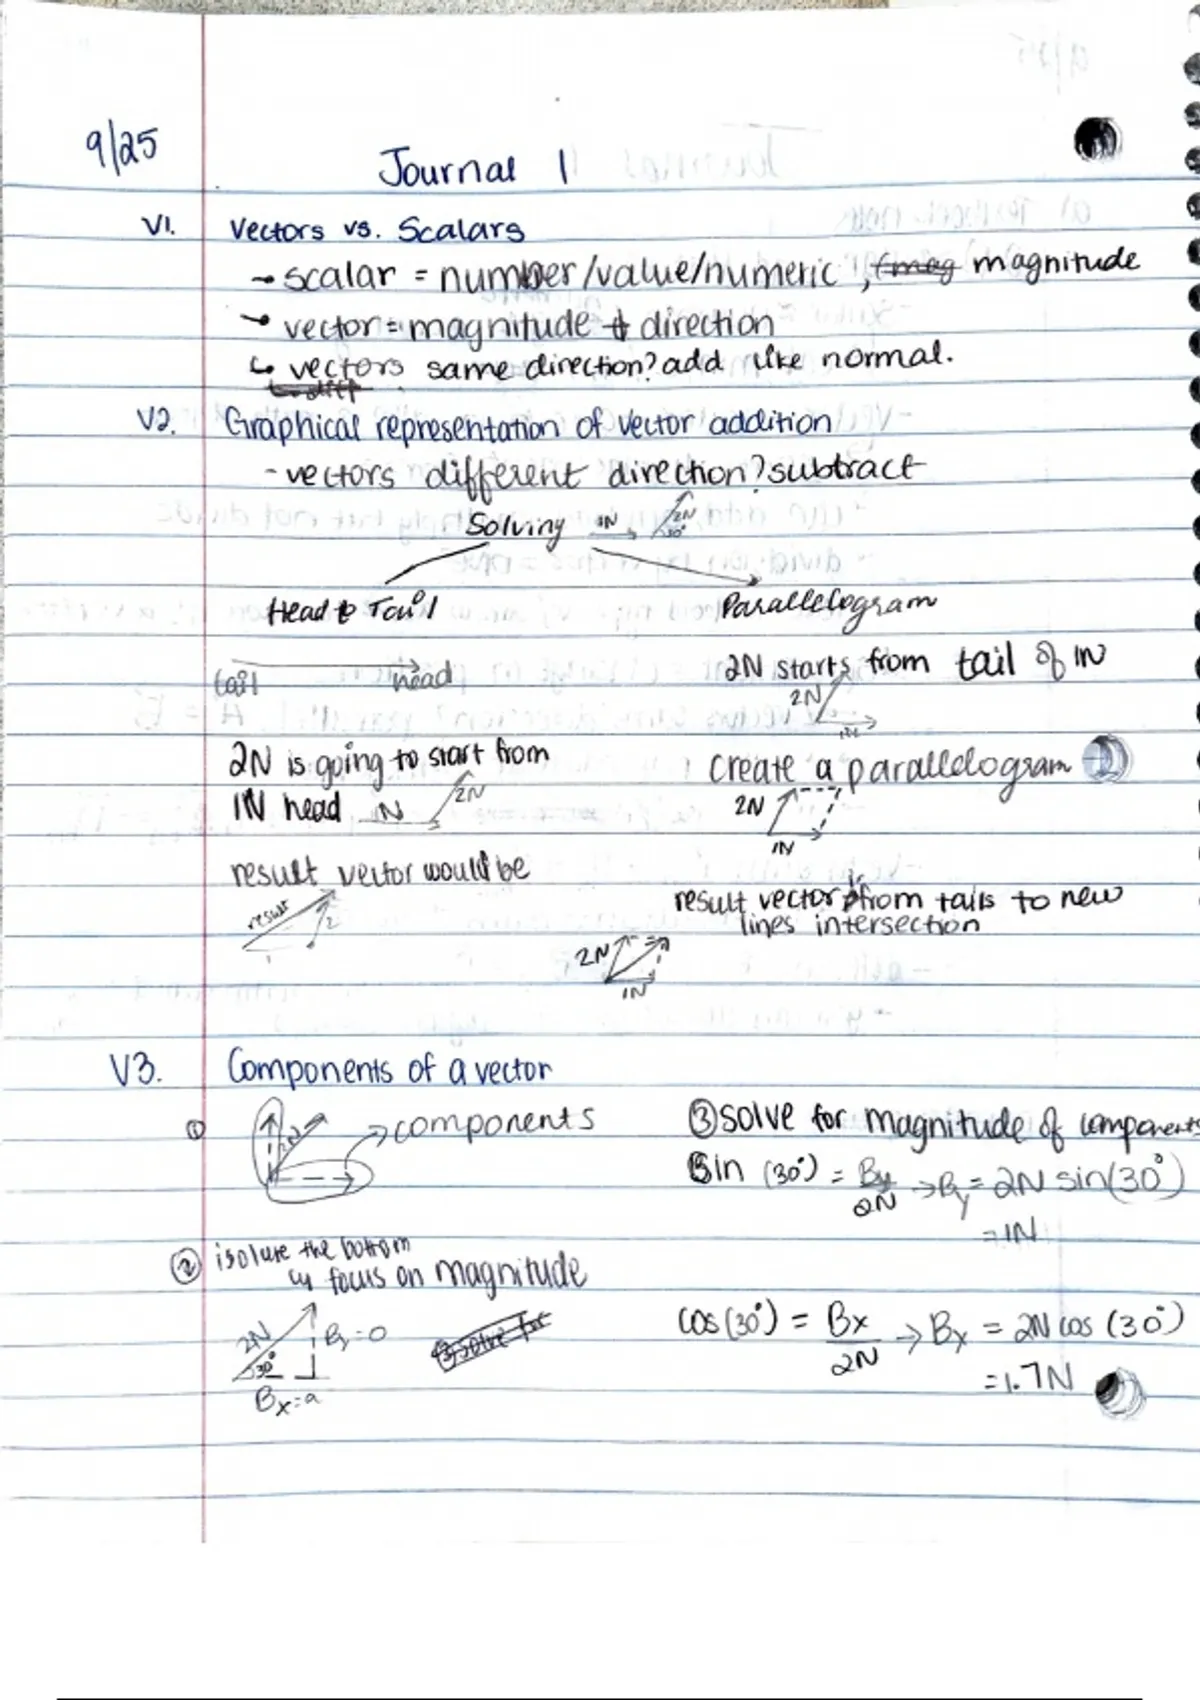 9/25
Journal 1
V1. Vectors vs. Scalars
→ scalar = number/value/numeric, (mag magnitude
→ vector = magnitude + direction
↳ vectors same direction? add like normal.
V2. Graphical representation of vector addition
- vectors different direction? subtract
Solving 1N 2N 30°
Head to Tail
Parallelogram
tail head
2N starts from tail of 1N
2N
1N
2N is going to start from
1N head 1N 2N
create a parallelogram
2N
1N
result vector would be
result 2
1
result vector from tails to new
lines intersection
2N
1N
V3. Components of a vector
① 2N → components
② isolate the bottom
↳ focus on magnitude
2N 30° By=0
Bx=a
③ solve for
③ solve for magnitude of components
Sin (30°) = By/2N → By = 2N sin(30°)
= 1N
cos(30°) = Bx/2N → Bx = 2N cos (30°)
= 1.7N